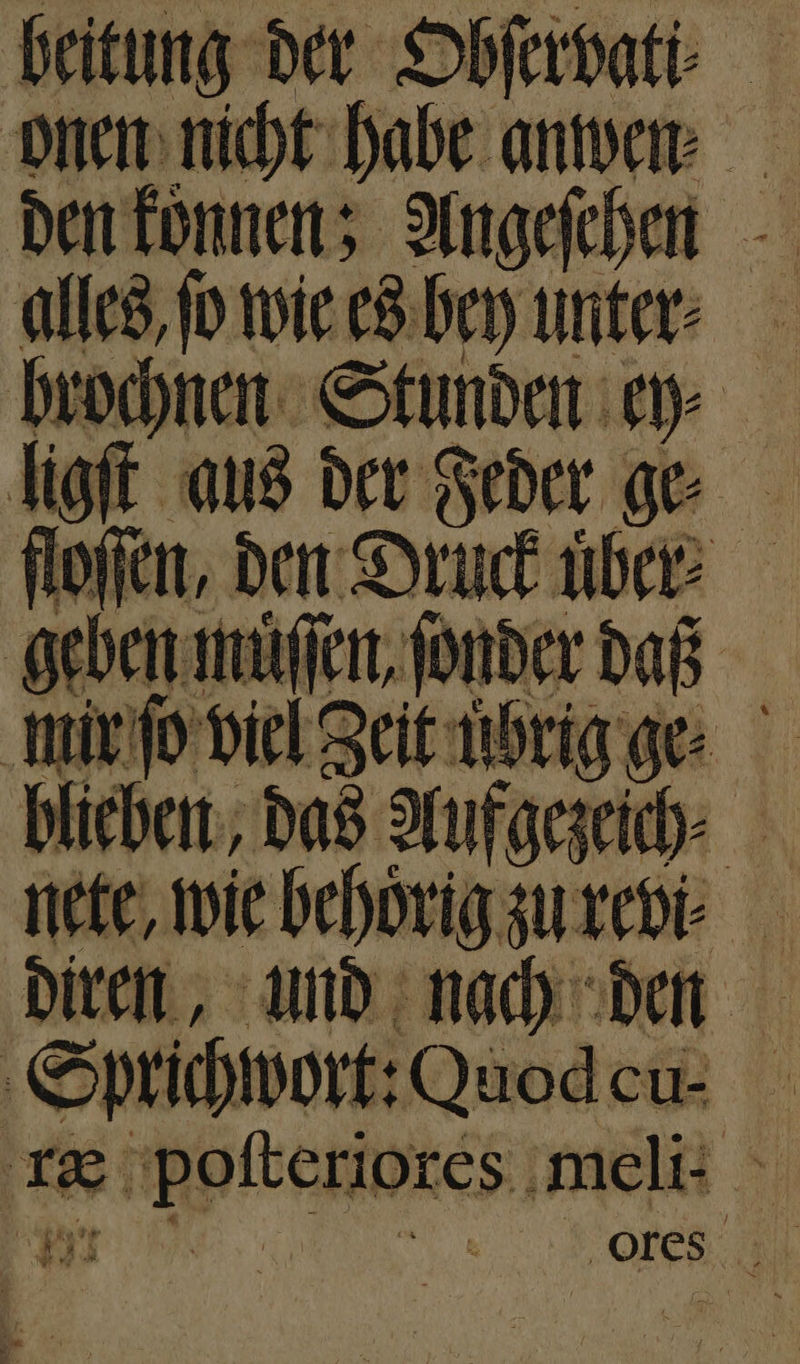 beitung der Obſervati⸗
onen nicht habe anwen⸗
den koͤnnen; Angeſehen
alles, ſo wie es bey unter⸗
brochnen Stunden ey⸗
ligſt aus der Feder ge⸗
floſſen, den Druck uͤber⸗
geben muͤſſen, ſonder daß
mir ſo viel Zeit uͤbrig ge⸗
blieben, das Aufgezeich⸗
nete, wie behoͤrig zu revi⸗
diren, und nach den
Sprichwort: Quod cu-
ræ poſteriores meli-
ores